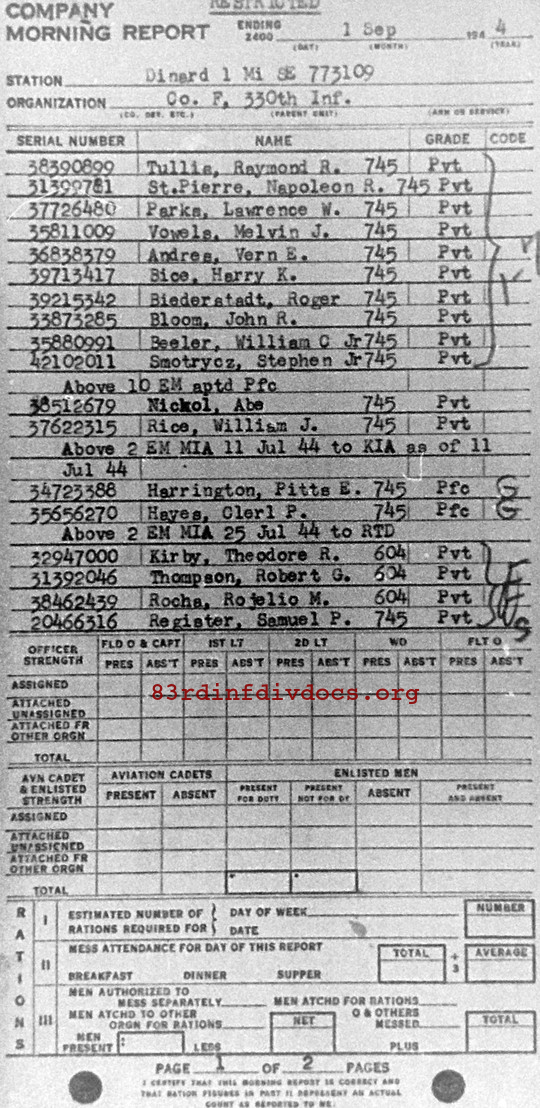 RESTRICTED
COMPANY
MORNING REPORT ENDING 2400 1 Sep 194 4
(DAY) (MONTH) (YEAR)
STATION Dinard 1 Mi SE 773109
ORGANIZATION Co. F, 330th Inf.
(CO. DET. ETC.) (PARENT UNIT) (ARM OR SERVICE)
SERIAL NUMBER NAME GRADE CODE
38390899 Tullis, Raymond R. 745 Pvt
31399781 St.Pierre, Napoleon R. 745 Pvt
37726480 Parks, Lawrence W. 745 Pvt
35811009 Vowels, Melvin J. 745 Pvt
36838379 Andres, Vern E. 745 Pvt
39713417 Bice, Harry K. 745 Pvt
39215342 Biederstadt, Roger 745 Pvt
33873285 Bloom, John R. 745 Pvt
35880991 Beeler, William C Jr 745 Pvt
42102011 Smotrycz, Stephen Jr 745 Pvt
Above 10 EM aptd Pfc
38512679 Nickol, Abe 745 Pvt
37622315 Rice, William J. 745 Pvt
Above 2 EM MIA 11 Jul 44 to KIA as of 11
Jul 44
34723388 Harrington, Pitts E. 745 Pfc G
35656270 Hayes, Clerl P. 745 Pfc G
Above 2 EM MIA 25 Jul 44 to RTD
32947000 Kirby, Theodore R. 604 Pvt
31392046 Thompson, Robert G. 604 Pvt
38462439 Rocha, Rojelio M. 604 Pvt
20466316 Register, Samuel P. 745 Pvt
OFFICER STRENGTH FLD O & CAPT 1ST LT 2D LT WD FLT O
PRES ABS'T PRES ABS'T PRES ABS'T PRES ABS'T PRES ABS'T
ASSIGNED
83rdinfdivdocs.org
ATTACHED UNASSIGNED
ATTACHED FR OTHER ORGN
TOTAL
AVN CADET & ENLISTED STRENGTH AVIATION CADETS ENLISTED MEN
PRESENT ABSENT PRESENT FOR DUTY PRESENT NOT FOR DY ABSENT PRESENT AND ABSENT
ASSIGNED
ATTACHED UNASSIGNED
ATTACHED FR OTHER ORGN
TOTAL
RATIONS
I ESTIMATED NUMBER OF RATIONS REQUIRED FOR DAY OF WEEK DATE NUMBER
II MESS ATTENDANCE FOR DAY OF THIS REPORT TOTAL ÷ 3 AVERAGE
BREAKFAST DINNER SUPPER
III MEN AUTHORIZED TO MESS SEPARATELY MEN ATCHD FOR RATIONS
MEN ATCHD TO OTHER ORGN FOR RATIONS NET O & OTHERS MESSED TOTAL
MEN PRESENT LESS PLUS
PAGE 1 OF 2 PAGES
I CERTIFY THAT THIS MORNING REPORT IS CORRECT AND
THAT RATION FIGURES IN PART II REPRESENT AN ACTUAL
COUNT AS REPORTED TO ME.